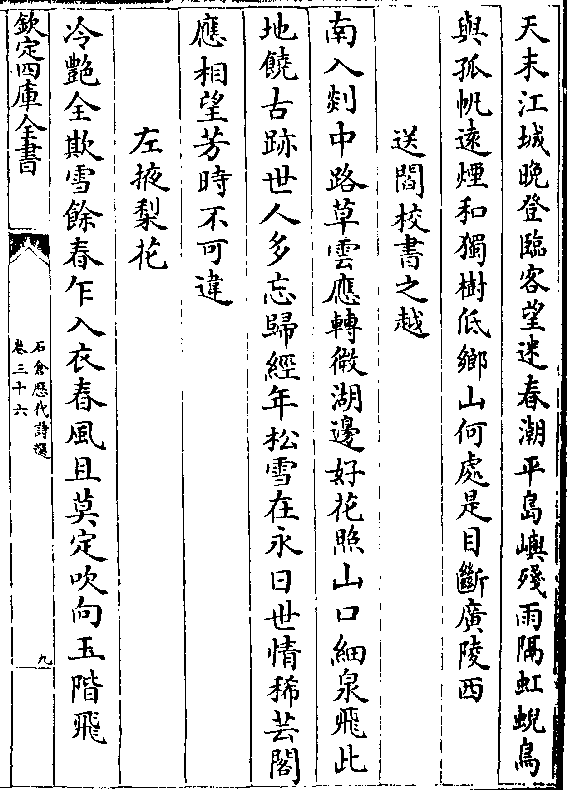 天末江城晩登臨客望迷春潮平島嶼殘雨隔虹蜺鳥
與孤帆遠煙和獨樹低鄉山何處是目斷廣陵西
送閻校書之越
南入剡中路草雲應轉微湖邊好花照山口細泉飛此
地饒古跡世人多忘歸經年松雪在永日世情稀芸閣
應相望芳時不可違
左掖梨花
冷艷全欺雪餘春乍入衣春風且莫定吹向玉階飛
欽定四庫全書
石倉歷代詩選
卷三十六
九